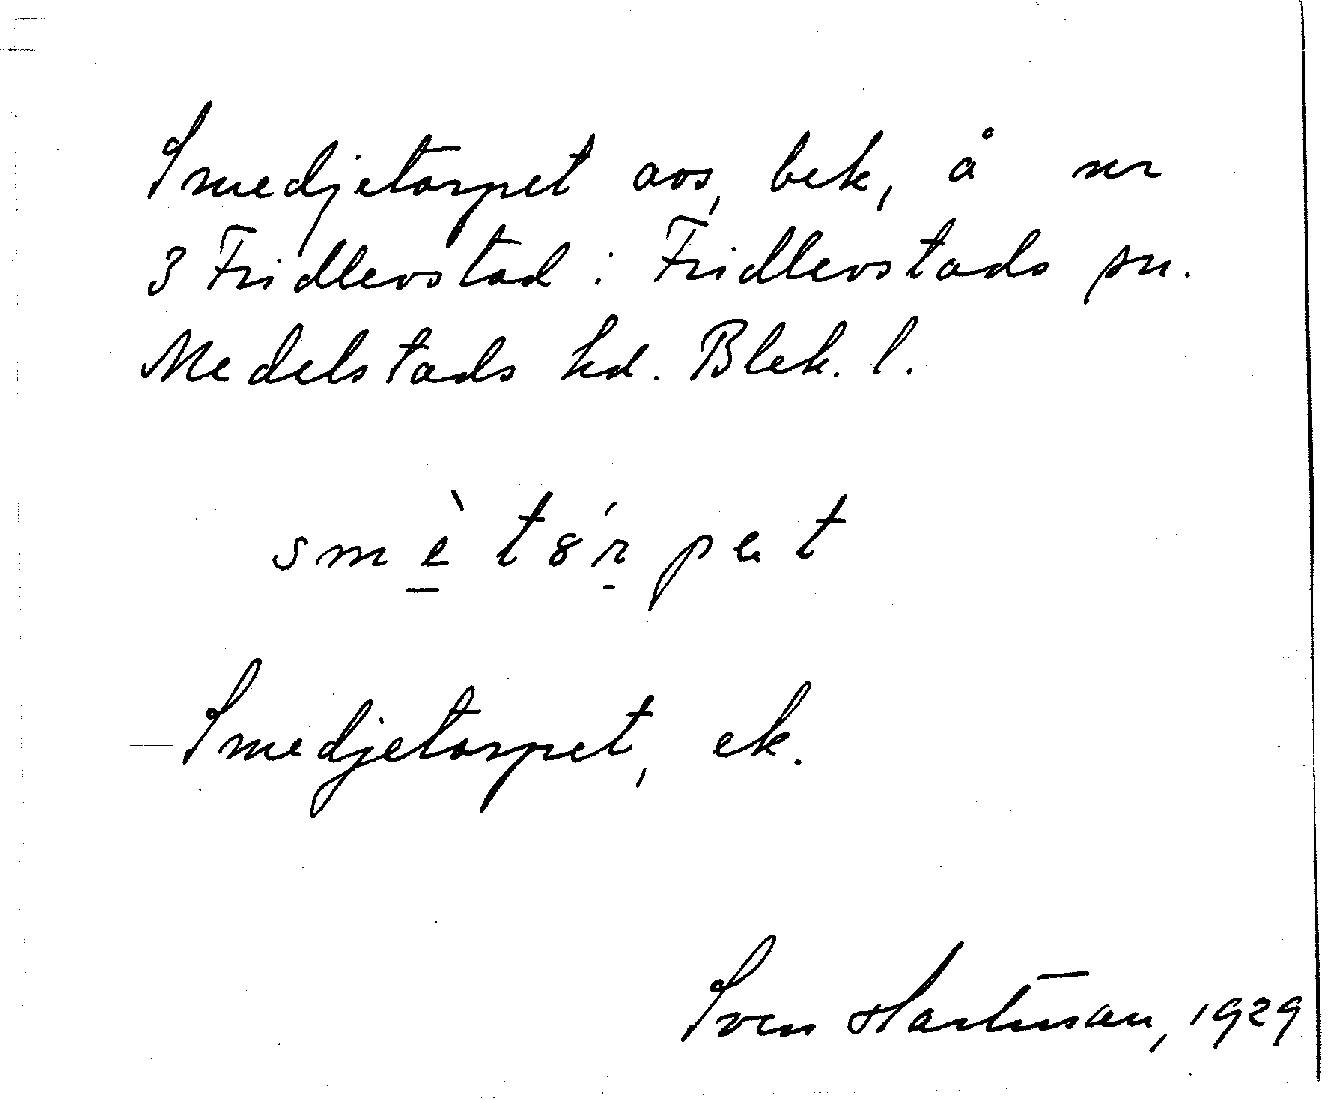 Smedjetorpet avs, bek, å nr
3 Fridlevstad i Fridlevstads sn.
Medelstads hd. Blek. l.
smètŕpet
Smedjetorpet, ek.
Sven Hartman, 1929